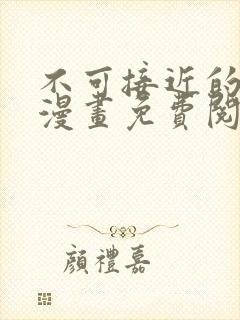 不可接近的
漫畫免費閱
顏禮嘉